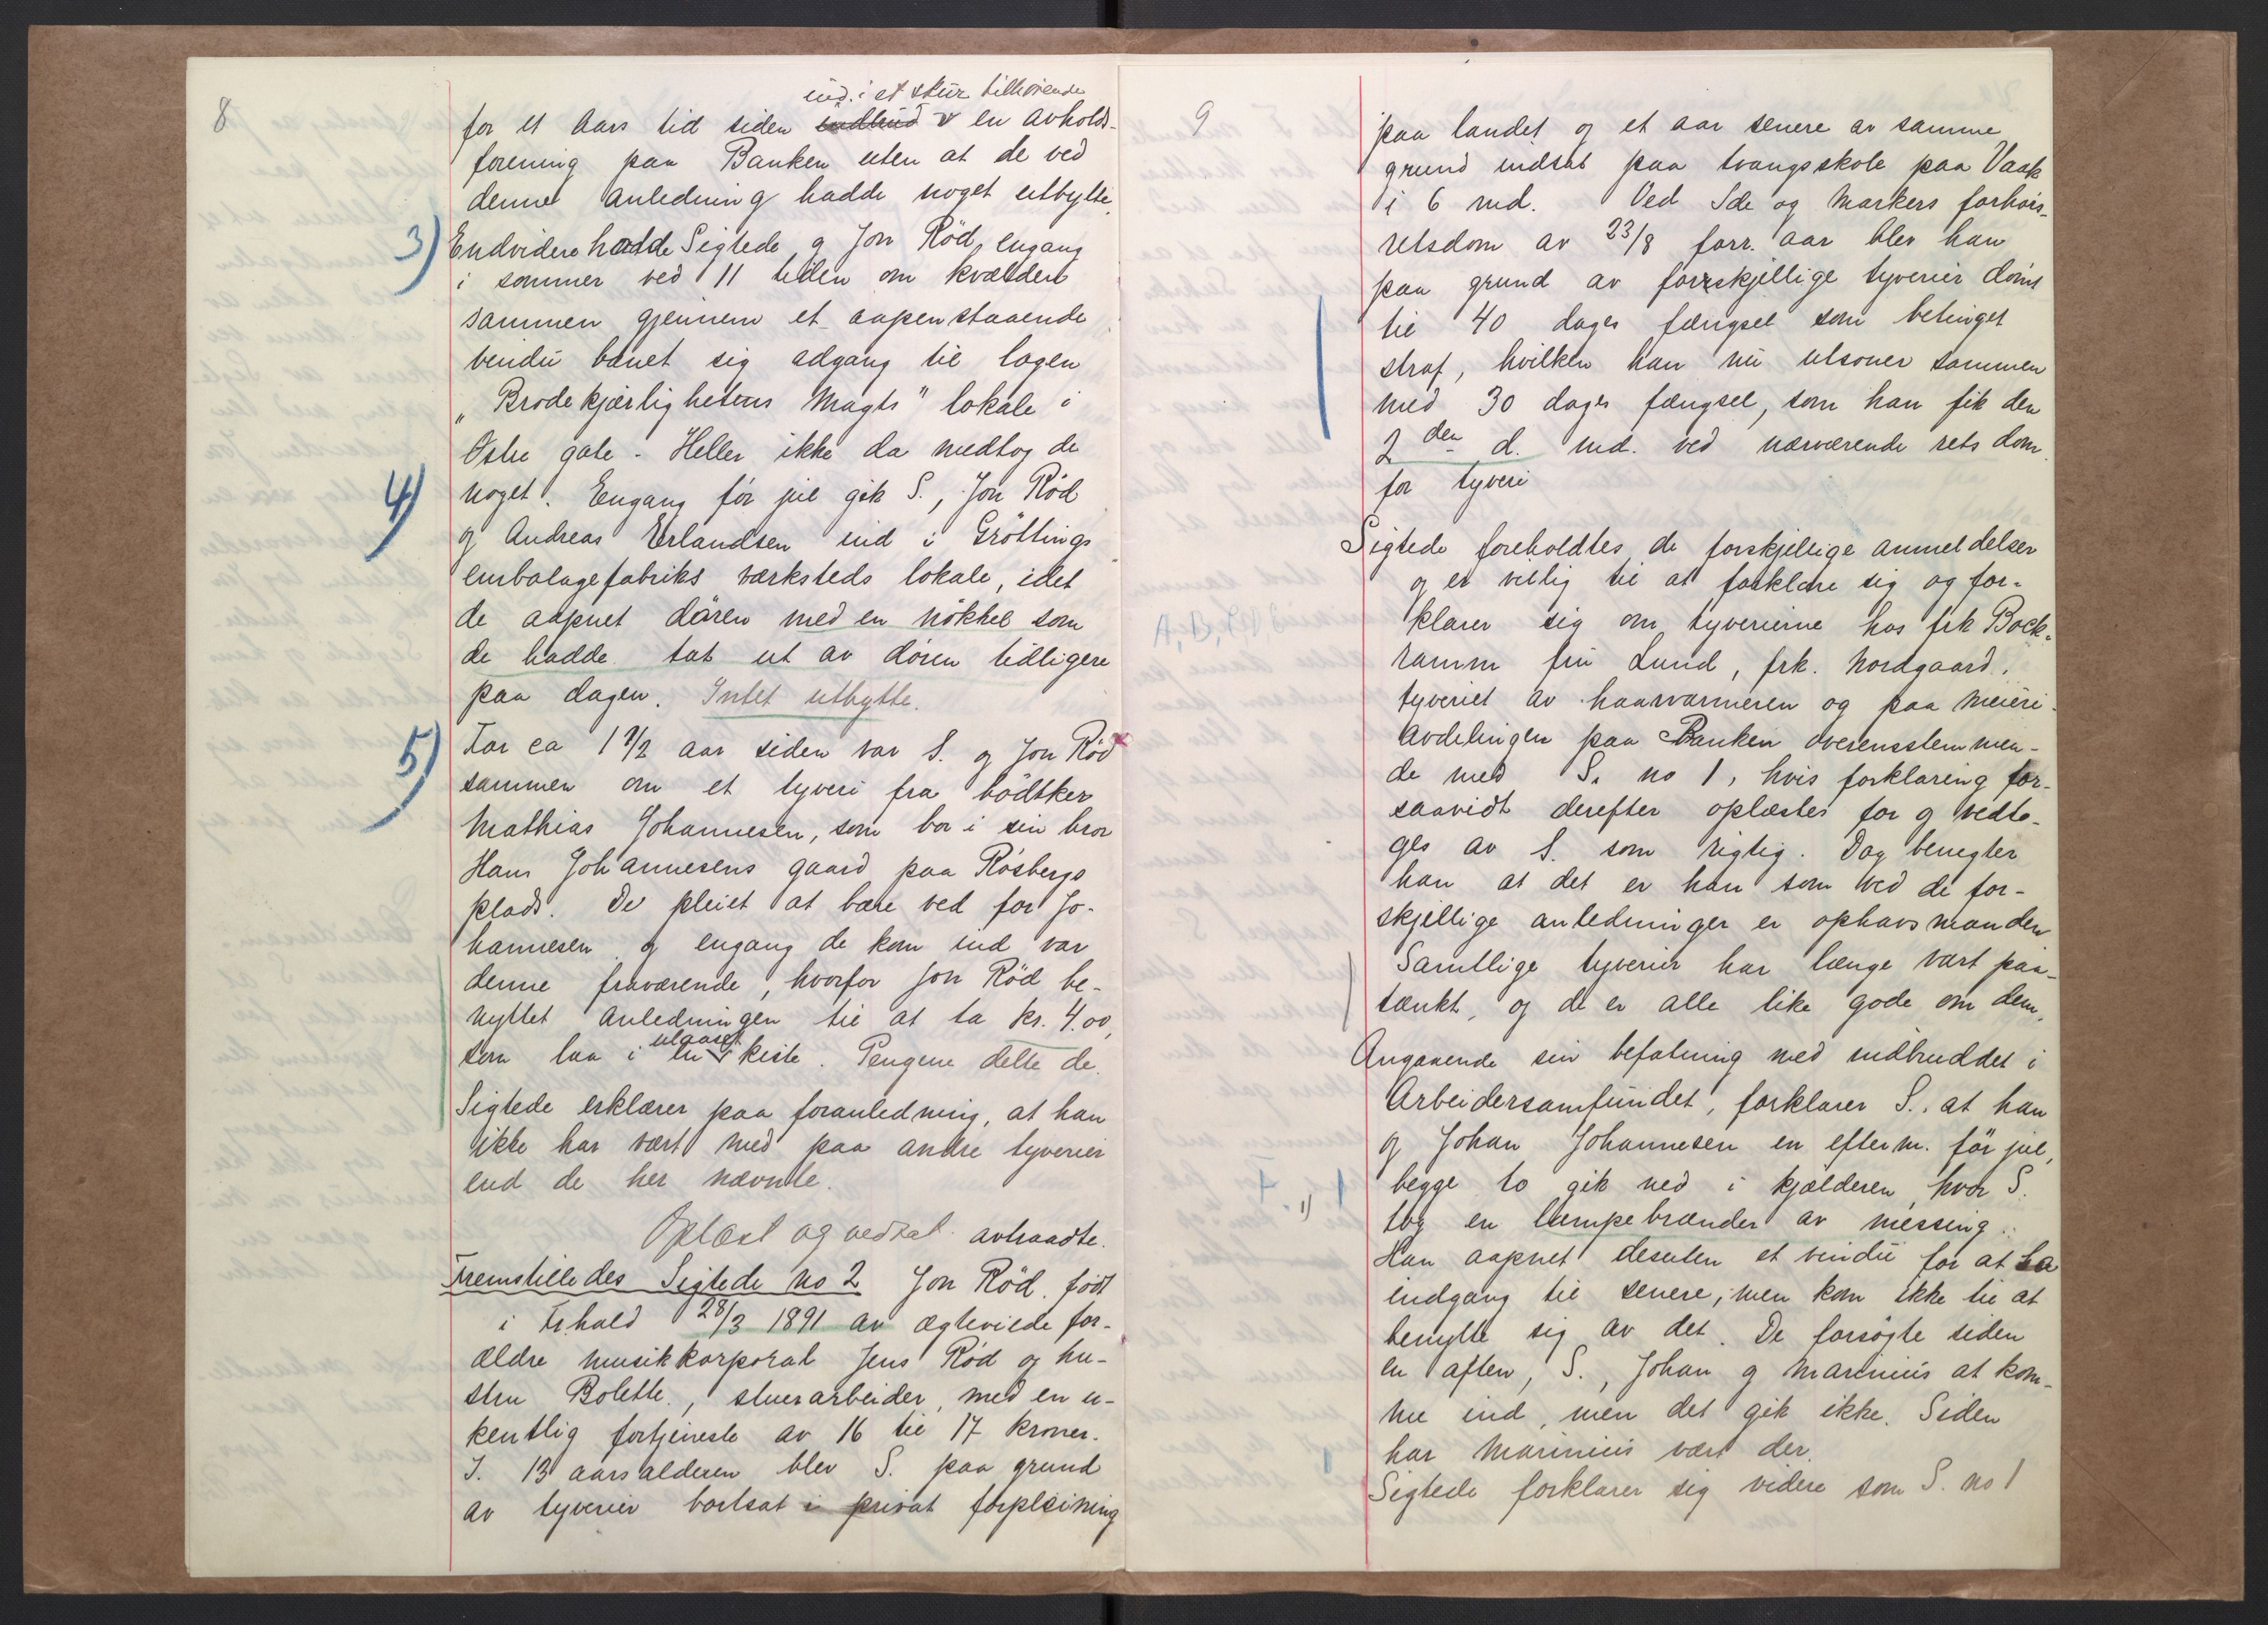 8
ind i et skur tilhørende
for et Aars tid siden indbrud v en avholds-
forening paa Banken uten at de ved
denne anledning hadde noget utbytte.
3) Endvidere hadde Sigtede og Jon Rød, engang
i sommer ved 11 tiden om kvælden
sammen gjennem et aapenstaaende
vindu banet sig adgang til logen
„Brodekjærlighetens Magts" lokale i
Østre gate. Heller ikke da medtog de
4) noget. Engang før jul gik S., Jon Rød
og Andreas Erlandsen ind i Grøttings
embalagefabriks værksteds lokale, idet
de aapnet døren med en nøkkel som
de hadde tat ut av døren tidligere
paa dagen. Intet utbytte.
5) For ca 1 1/2 aar siden var S. og Jon Rød
sammen om et tyveri fra bødtker
Mathias Johannesen, som bor i sin bror
Hans Johannesens gaard paa Røsbergs
plads. De pleiet at bære ved for Jo-
hannesen og engang de kom ind var
denne fraværende, hvorfor Jon Rød be-
nyttet anledningen til at ta kr. 4.00,
ulaaset
som laa i en v kiste. Pengene delte de.
Sigtede erklærer paa foranledning, at han
ikke har vært med paa andre tyverier
end de her nævnte.
Oplæst og vedtat. avtraadte.
Fremstilledes Sigtede no 2 Jon Rød. født
i Fr.hald 28/3 1891 av ægteviede for-
ældre musikkorporal Jens Rød og hu-
stru Bolette., stuerarbeider, med en u-
kentlig fortjeneste av 16 til 17 kroner.
I. 13 aarsalderen blev S. paa grund
av tyverier bortsat i privat forpleining
9
paa landet og et aar senere av samme
grund indsat paa tvangsskole paa Vaak
i 6 md. Ved Ide og Markers forhørs-
retsdom av 23/8 forr. aar blev han
paa grund av forskjellige tyverier dømt
til 40 dages fængsel som betinget
straf, hvilken han nu utsoner sammen
med 30 dages fængsel, som han fik den
2den d. md. ved nærværende rets dom
for tyveri
Sigtede foreholdtes de forskjellige anmeldelser
og er villig til at forklare sig og for-
klarer sig om tyverierne hos frk Bock-
ramm fru Lund, frk. Nordgaard.
tyveriet av haarvarmeren og paa Meieri-
avdelingen paa Banken overensstemmen-
de med S. no 1, hvis forklaring for-
saavidt derefter oplæstes for og vedto-
ges av S. som rigtig. Dog benegter
han at det er han som ved de for-
skjellige anledninger er ophavsmanden
Samtlige tyverier har længe vært paa-
tænkt, og de er alle like gode om dem.
Angaaende sin befatning med indbruddet i
Arbeidersamfundet, forklarer S., at han
og Johan Johannesen en efterm. før jul,
begge to gik ned i kjælderen hvor S.
1) tog en lampebrænder av messing.
Han aapnet desuten et vindu for at ha
indgang til senere; men kom ikke til at
benytte sig av det. De forsøgte siden
en aften, S., Johan og Marinius at kom-
me ind, men det gik ikke. Siden
har Marinius vært der.
Sigtede forklarer sig videre som S. no 1